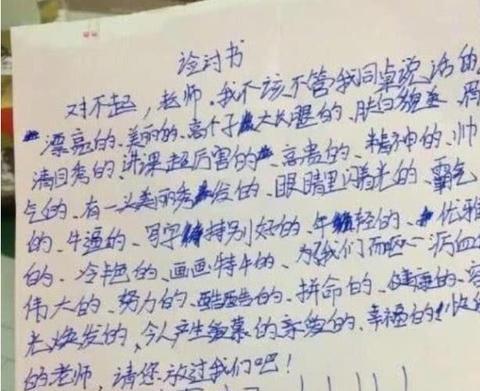 检讨书
对不起，老师，我不该不管我同桌说话的
漂亮的、美丽的、高个子大长腿的、肤白貌美 眉
清目秀的 讲课超厉害的、高贵的、精神的、帅
气的、有一头美丽秀发的、眼睛里闪着光的、霸气
的、牛逼的、写字特别好的、年轻的、优雅
的、冷艳的、画画特牛的、为我们而呕心沥血的
伟大的、努力的、酷酷的、拼命的、健康的、容
光焕发的、令人产生羡慕的亲爱的、幸福的
的老师，请您放过我们吧！